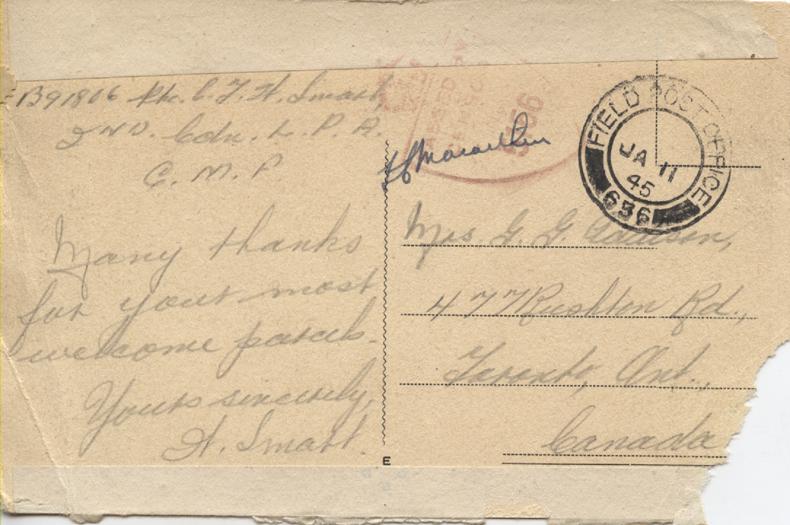 B91806 Pte. C. F. H. Smart
2ND. Cdn. L. P. A.
C. M. F
Many thanks
for your most
welcome parcels.
Yours sincerely,
H. Smart.
FIELD POST OFFICE
JA 11
45
656
Mrs G. G.
477 Rushton Rd.,
Toronto, Ont.,
Canada
E